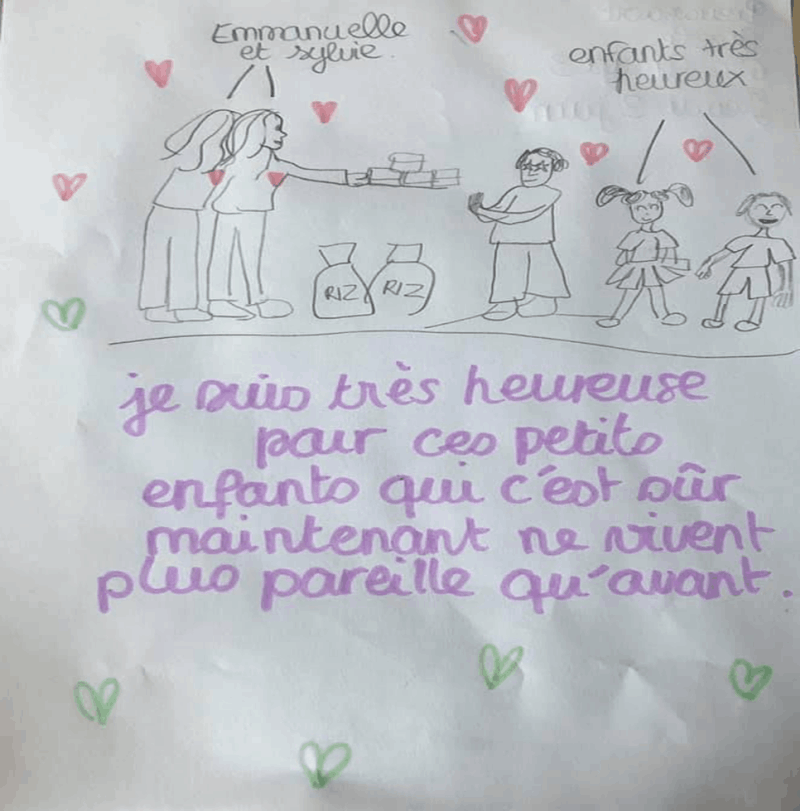 Emmanuelle
et sylvie.
enfants très
heureux
RIZ
RIZ
je suis très heureuse
pour ces petits
enfants qui c'est sûr
maintenant ne vivent
plus pareille qu'avant.